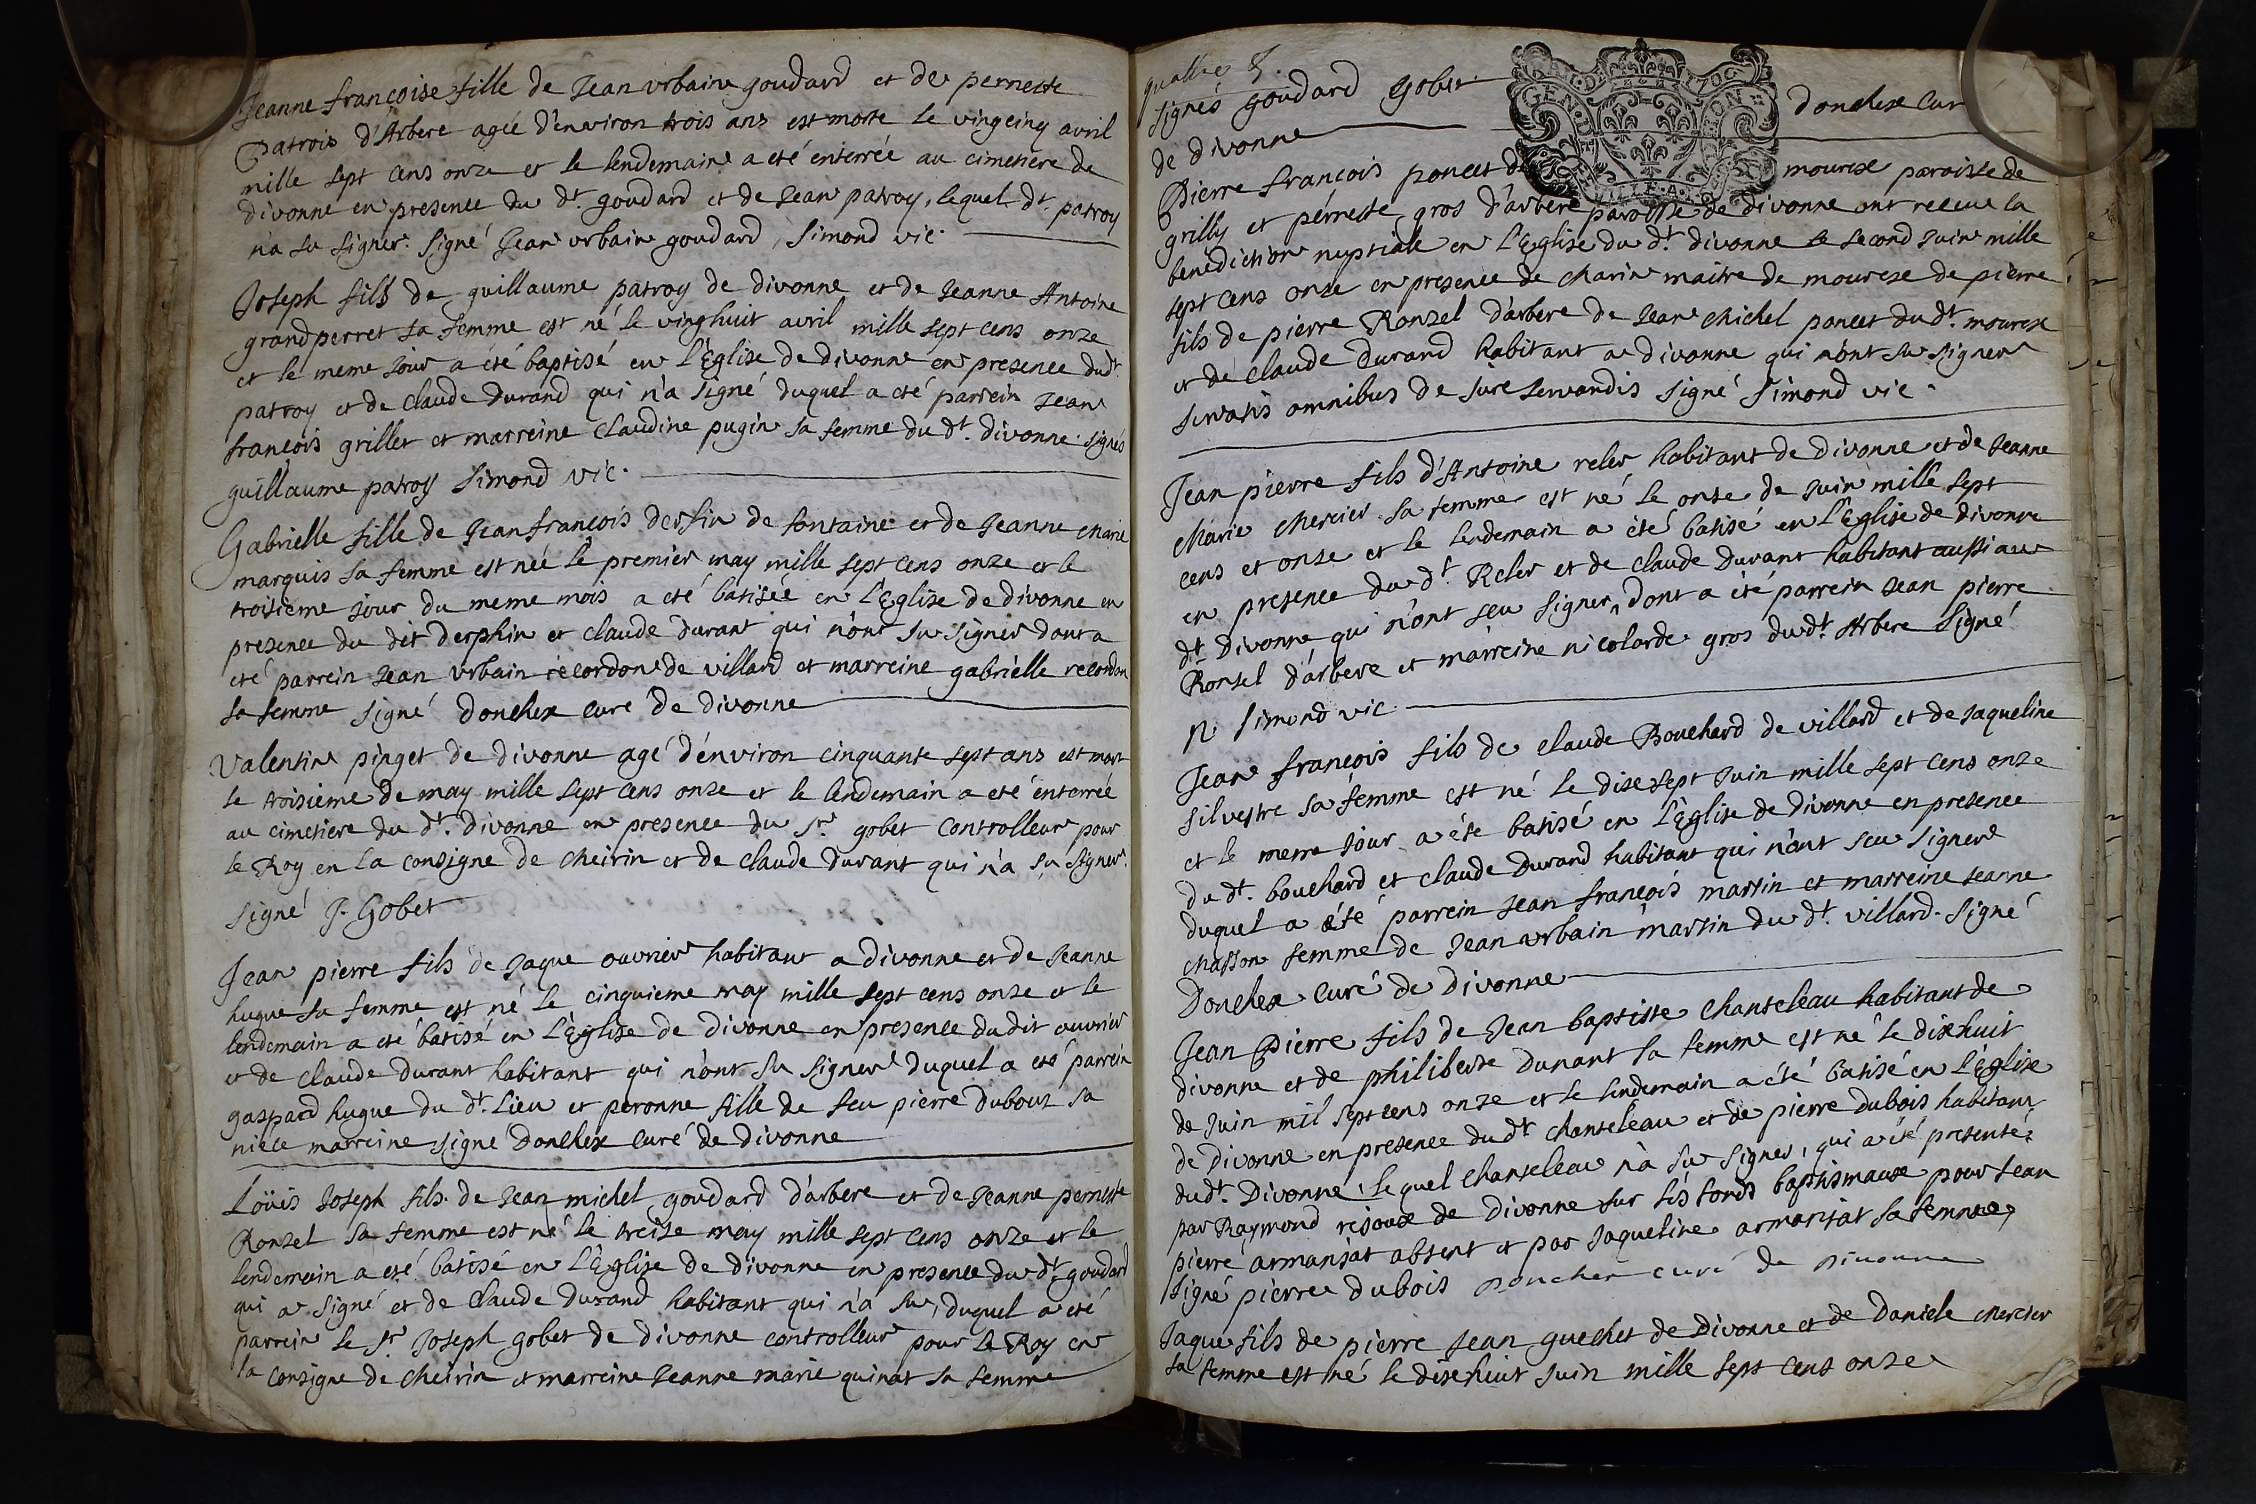 Jeanne françoise fille de Jean urbain goudard et de pernette
Patrois d'Arbere agée d'environ trois ans est morte le vingcinq avril
mille sept cens onze et le lendemain a eté enterrée au cimetiere de
divonne en presence du dt. goudard et de Jean patroy, lequel dt. patroy
n'a su signer. Signé Jean urbain goudard, Simond vic.
Joseph fils de guillaume patroy de divonne et de Jeanne Antoine
grandperret sa femme est né le vinghuit avril mille sept cens onze
et le meme jour a eté baptisé en l'Eglise de divonne en presence dudt.
patroy et de claude Durand qui n'a signé duquel a eté parrein Jean
françois grillet et marreine Claudine pugin sa femme du dt. divonne signés
guillaume patroy Simond vic.
Gabrielle fille de Jean françois derfin de fontaine et de Jeanne marie
marquis sa femme est née le premier may mille sept cens onze et le
troisieme jour du meme mois a eté batisée en l'Eglise de divonne en
presence du dit derphin et claude durant qui n'ont su signer dont a
eté parrein Jean Urbain recordon de villard et marreine gabrielle recordon
sa femme signé donchex curé de divonne
Valentin pinget de divonne agé d'environ cinquante sept ans est mort
le troisieme de may mille sept cens onze et le lendemain a eté enterré
au cimetiere du dt. divonne en presence du sr. gobet controlleur pour
le Roy en la consigne de cheirin et de claude durant qui n'a su signer.
signé J. Gobet
Jean pierre fils de Jaque ouvrier habitant a divonne et de Jeanne
hugue sa femme est né le cinquieme may mille sept cens onze et le
lendemain a eté batisé en l'Eglise de divonne en presence dudit ouvrier
et de claude durant habitant qui n'ont su signer duquel a eté parrein
gaspard hugue du dt. lieu et peronne fille de feu pierre dubout sa
niece marreine signé donchex curé de divonne
Loüis Joseph fils de Jean michel goudard d'arbere et de Jeanne pernette
Ronzel sa femme est né le treize may mille sept cens onze et le
lendemain a eté batisé en l'Eglise de divonne en presence du dt. goudard
qui a signé et de Claude Durand habitant qui n'a su, duquel a eté
parrein le sr Joseph gobet de divonne controlleur pour le Roy en
la consigne de cheirin et marreine Jeanne marie quinat sa femme
quattre
signés goudard gobet donchex cur
de divonne
GEN. D 1706
Pierre françois poncet de mourex paroisse de
grilly et pernette gros d'arbere paroisse de divonne ont receue la
benediction nuptiale en l'Eglise du dt. divonne le second juin mille
sept cens onze en presence de charin maitre de mourex de pierre
fils de pierre Ronzel d'arbere de Jean michel poncet du dt. mourex
et de claude durand habitant a divonne qui n'ont su signer
servatis omnibus de jure servandis signé Simond vic.
Jean pierre fils d'Antoine reler habitant de divonne et de Jeanne
Marie Mercier sa femme est né le onze de juin mille sept
cens et onze et le lendemain a été batisé en l'Eglise de divonne
en presence du dt. Reler et de claude Durant habitant aussi au
dt. divonne qui n'ont seu signer dont a été parrein Jean pierre
Ronzel d'arbere et marreine nicolarde gros du dt. Arbere Signé
N Simond vic.
Jean françois fils de claude Bouchard de villard et de Jaqueline
silvestre sa femme est né le dixsept juin mille sept cens onze
et le meme jour a été batisé en l'Eglise de divonne en presence
du dt. bouchard et claude durand habitant qui n'ont seu signer
duquel a été parrein Jean françois martin et marreine Jeanne
chasson femme de Jean urbain martin du dt. villard. Signé
Donchex Curé de divonne
Jean Pierre fils de Jean baptiste Chanteleau habitant de
divonne et de philiberte dunant sa femme est né le dixhuit
de juin mil sept cens onze et le lendemain a été batisé en l'Eglise
de Divonne en presence du dt. chanteleau et de pierre dubois habitant
du dt. Divonne, lequel chanteleau n'a su signer, qui a été presenté
par Raymond rejoux de divonne sur les fonds baptismaux pour Jean
pierre armanjat absent et par Jaqueline armanjat sa femme,
signé pierre dubois Donchex curé de divonne
Jaque fils de pierre Jean guechet de Divonne et de Daniele mercier
sa femme est né le dixhuit juin mille sept cens onze